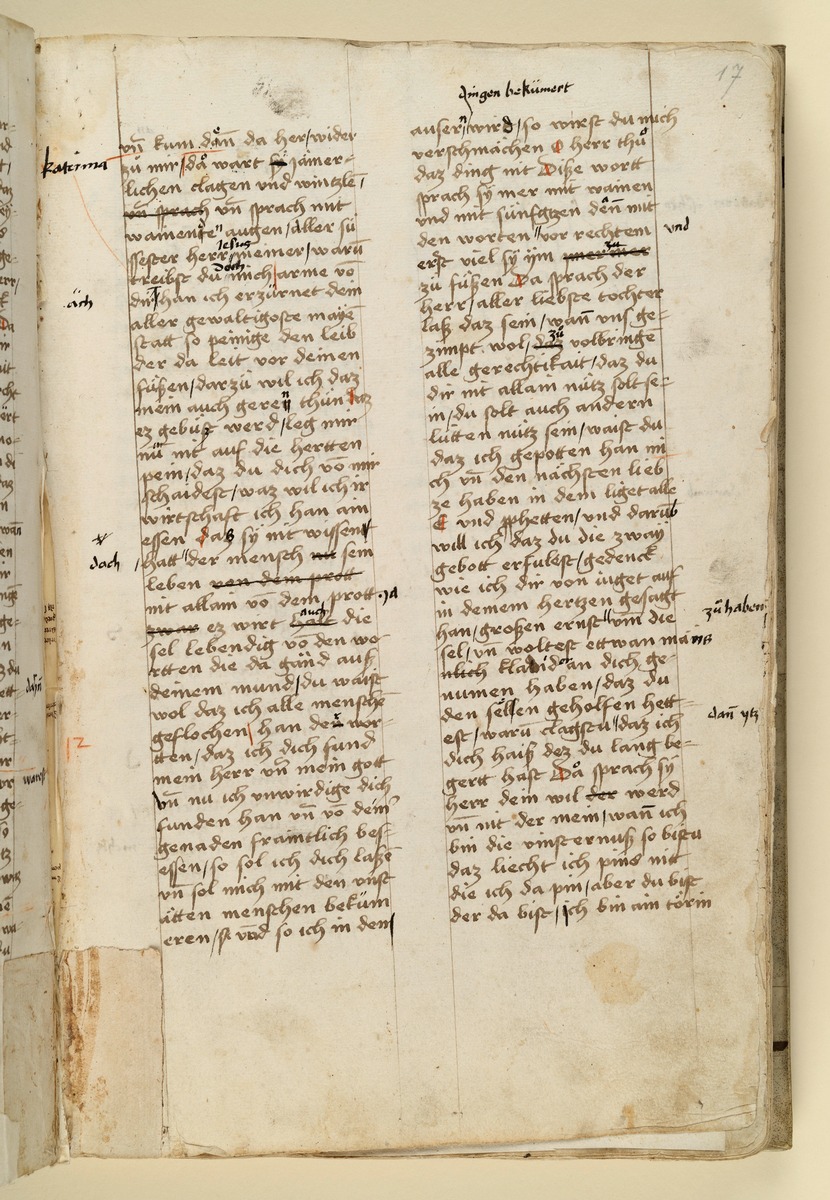 17
vn̄ kum dan̄ da her / wider
katerina
zů mir / då wart sÿ jämer-
lichen clagen vnd wintzlē /
vn̄ sprach vn̄ sprach mit
wainende augen / aller sü
Jesus
ssester herr meiner / warū
Doch
treibst du mich / arme võ
dir / han ich erzürnet dein
äch
aller gewaltigoste maye
statt so peinige den leib
der da leit vor deinen
füßen / darzů wil ich daz
mein auch geren thůn daz
ez gebüßt werd / leg mir
nů nit auf die hertten
pein / daz du dich võ mir
schaidest / waz wil ich ir
wirtschaft ich han ain
essen daß sÿ nit wissent
dach
hatt der mensch nit sein
leben von dem prott
nit allain võ dem prott ja
zwar ez wirt auch die
sel lebendig võ den wo-
rtten die da gand auß
deinem mund / du waist
wol daz ich alle menschē
geflochen han den wor-
12
tten / daz ich dich fund
mein herr vn̄ mein gott
vn̄ nu ich vnwirdige dich
funden han vn̄ võ dein
genaden fraintlich bes-
essen / so sol ich dich laßē
vn̄ sol mich mit den vnst
ätten menschen bekům
eren / so vnd so ich in dem
dingen bekümert
auser wird / so wirst du mich
verschmächen O herr thů
daz ding nit Diße wortt
sprach sÿ mer mit wainen
vnd mit sünfgtzen den̄ mit
den worten vor rechtem
vnd
erst viel sÿ ÿm
zu
zů füßen Da sprach der
herr / aller liebste tochter
laß daz sein / wan̄ vns ge-
zimpt wol / zů volbringē
alle gerechtikait / daz du
dir nit allain nütz solt se-
in / du solt auch andern
lütten nütz sein / waist du
daz ich gepotten han mi
ch vn̄ den nächsten lieb
ze haben in dem liget alle
E vnd pphetten / vnd darūb
will ich daz du die zway
gebott erfulest / gedenck
wie ich dir von iuget auf
in deinem hertzen gesagt
zů haben
han / großen ernst vm die
sel / vn̄ woltest ettwan mäns
nlich klaid an dich ge-
numen haben / daz du
den sellen geholfen hett-
dan̄ ytz
est / warū clagstu daz ich
dich haiß dez du lang be-
gertt hast Då sprach sÿ
herr dein wil der werd
vn̄ nit der mein / wan̄ ich
bin die vinsternuß so bistu
daz liecht ich pins nitt
die ich da pin / aber du bist
der da bist / ich bin ain törin